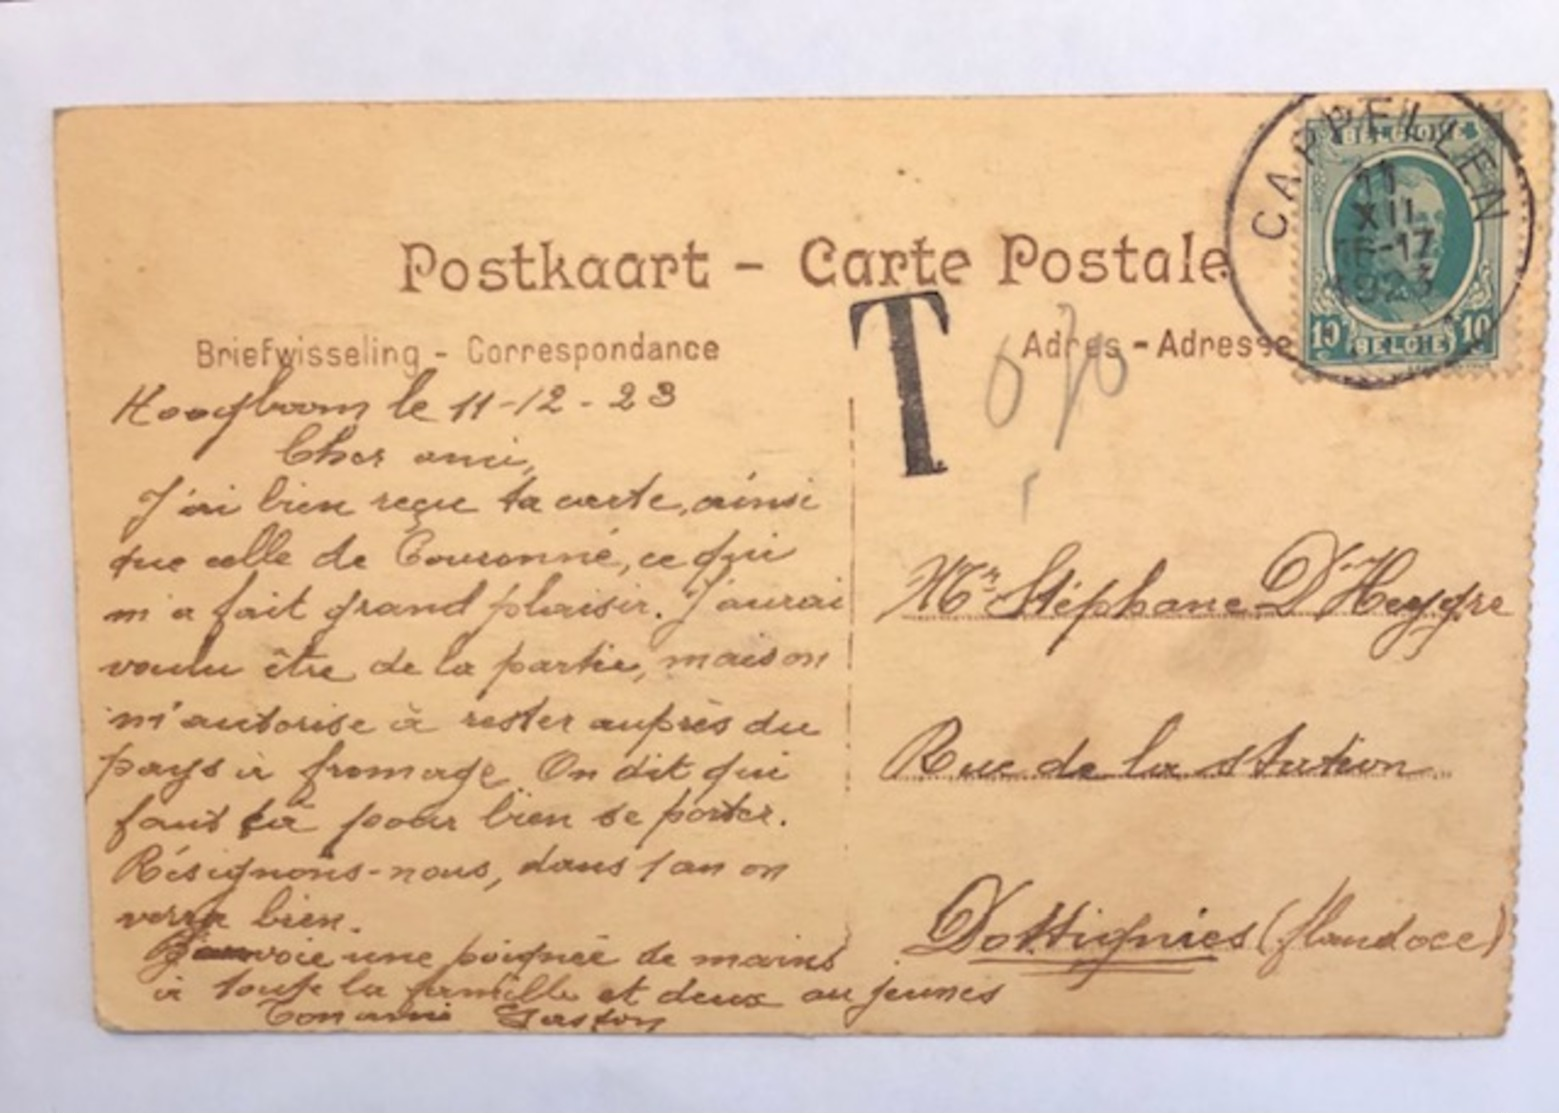 Postkaart - Carte Postale
Briefwisseling - Correspondance
Adres - Adresse
CAPPELLEN
11
XII
16-17
1923
BELGIQUE
10 BELGIË 10
T
0,70
Hoogboom le 11-12-23
Cher ami,
J'ai bien reçu ta carte, ainsi
que celle de Couronné, ce qui
m'a fait grand plaisir. J'aurai
voulu être de la partie, mais on
m'autorise à rester auprès du
pays à fromage. On dit qui
faut ça pour bien se porter.
Résignons-nous, dans 1 an on
verra bien.
J'envoie une poignée de mains
à toute la famille et deux au jeunes
Ton ami Gaston
Mr Stéphane D'Heygre
Rue de la station
Dottignies (flandoce)